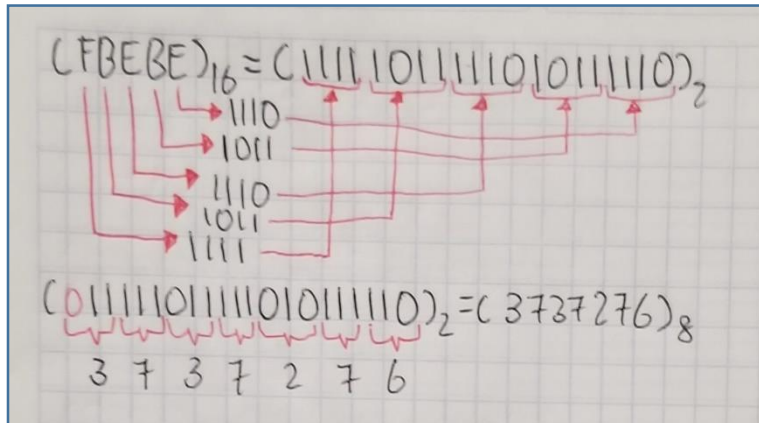 (FBEBE)16 = (11111011111010111110)2
1110
1011
1110
1011
1111
(011111011111010111110)2 = (3737276)8
3 7 3 7 2 7 6